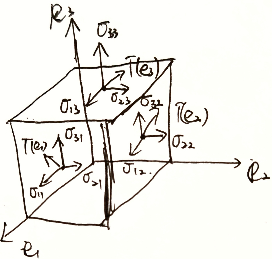 e3
σ33
T(e3)
σ13
σ23
σ32
T(e2)
σ31
T(e1)
σ22
σ11
σ21
σ12
e2
e1